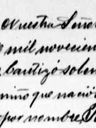 Nuestra Seño
mil novecien
bautizó solem
niño que nació
por nombre